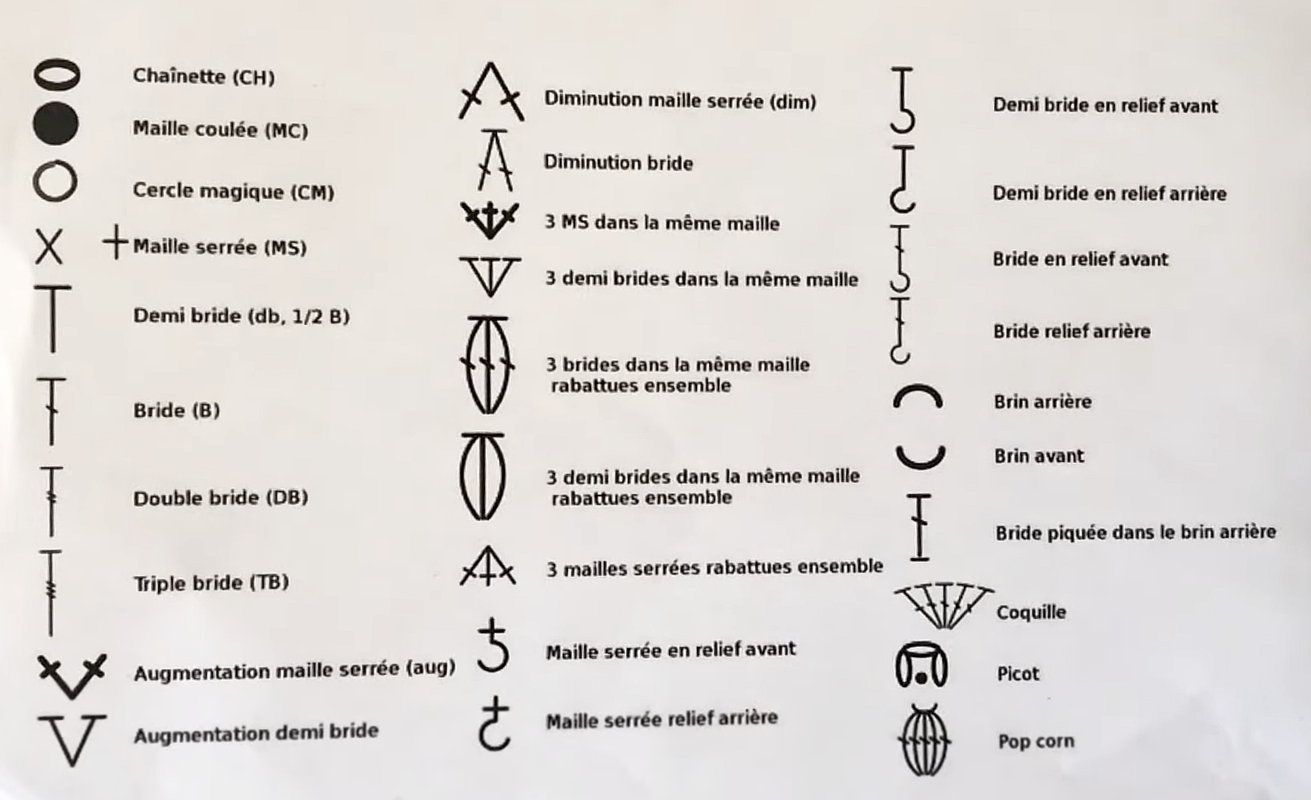 Chaînette (CH)
Maille coulée (MC)
Cercle magique (CM)
Maille serrée (MS)
Demi bride (db, 1/2 B)
Bride (B)
Double bride (DB)
Triple bride (TB)
Augmentation maille serrée (aug)
Augmentation demi bride
Diminution maille serrée (dim)
Diminution bride
3 MS dans la même maille
3 demi brides dans la même maille
3 brides dans la même maille
rabattues ensemble
3 demi brides dans la même maille
rabattues ensemble
3 mailles serrées rabattues ensemble
Maille serrée en relief avant
Maille serrée relief arrière
Demi bride en relief avant
Demi bride en relief arrière
Bride en relief avant
Bride relief arrière
Brin arrière
Brin avant
Bride piquée dans le brin arrière
Coquille
Picot
Pop corn